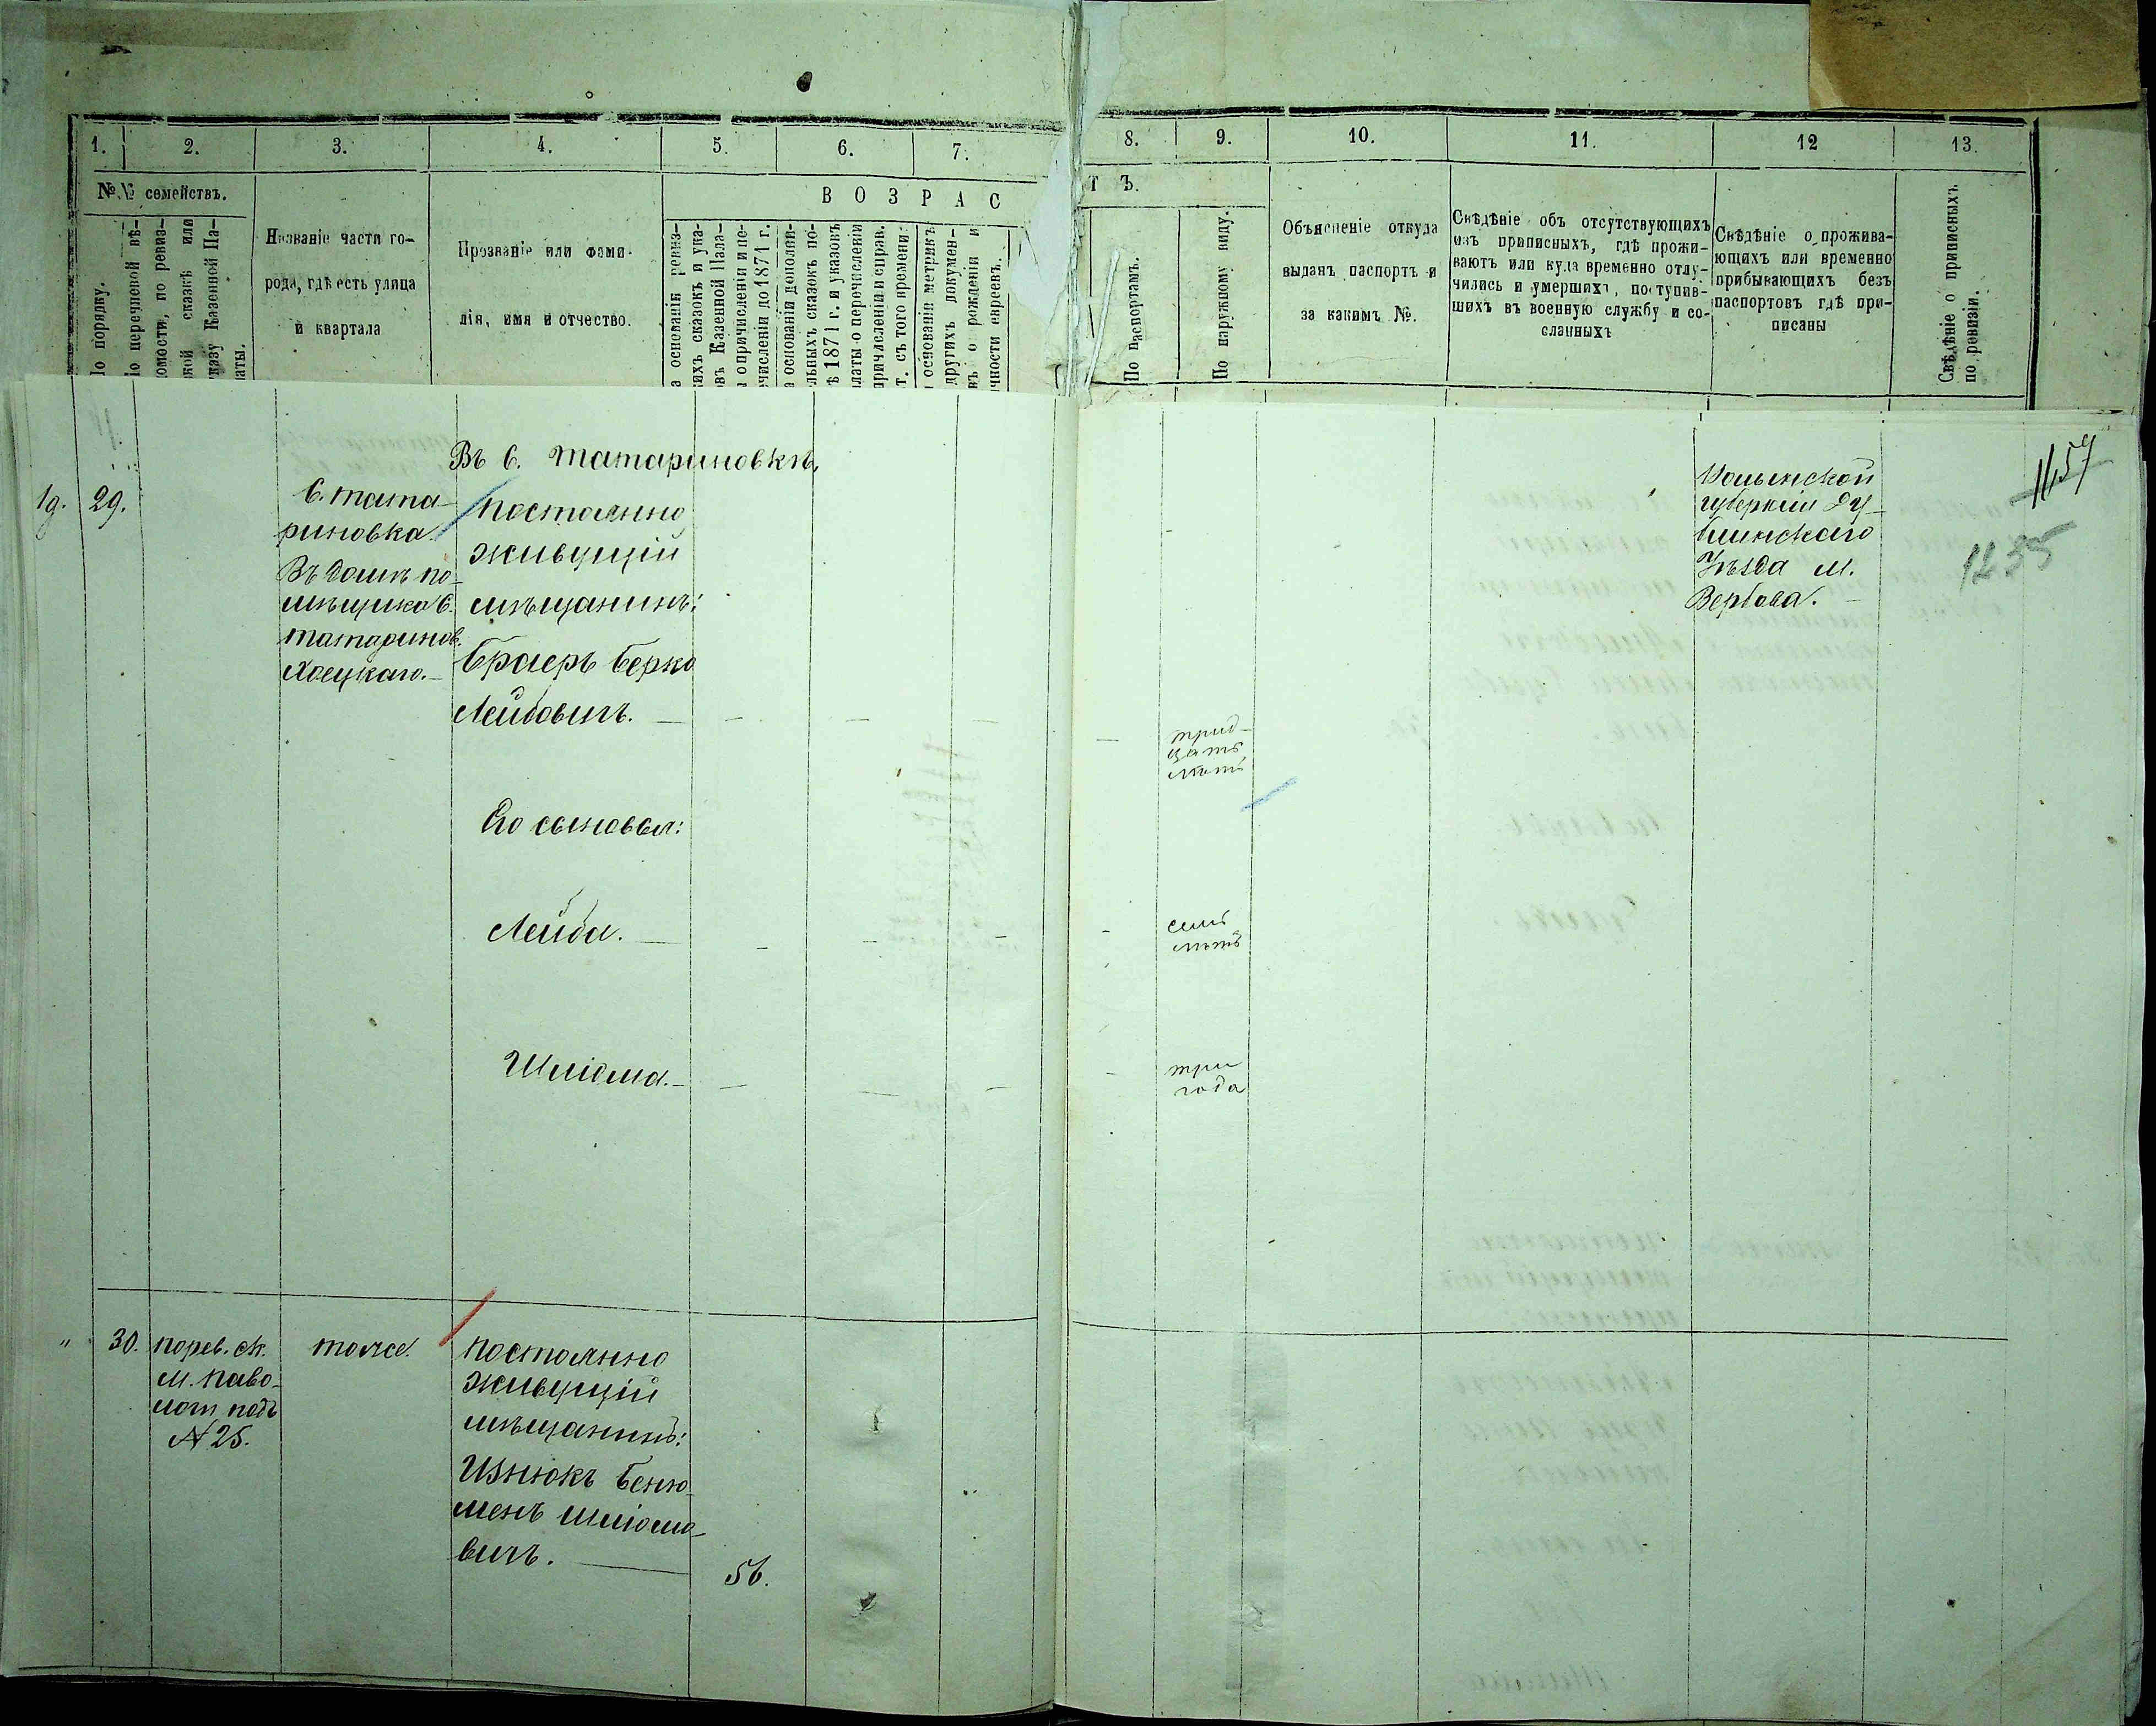 1.
2.
3.
4.
5.
6.
7.
8.
9.
10.
11.
12
13.
№№ семействъ.
По порядку.
По перечневой вѣ-
домости, по ревиз-
ской сказкѣ или
указу Казенной Па-
латы.
Названіе части го-
рода, гдѣ есть улица
и квартала
Прозваніе или фами-
лія, имя и отчество.
ВОЗРАС
ТЪ.
На основаніи ревиз-
скихъ сказокъ и ука-
зовъ Казенной Пала-
ты о причисленіи и пе-
речисленіи до 1871 г.
На основаніи дополни-
тельныхъ сказокъ по-
слѣ 1871 г. и указовъ
Палаты о перечисленіи
причисленіи и справ.
лѣт. съ того времени.
На основаніи метрикъ
и другихъ докумен-
товъ о рожденіи и
личности евреевъ.
По паспортамъ.
По наружному виду.
Объясненіе откуда
выданъ паспортъ и
за какимъ №.
Свѣдѣніе объ отсутствующихъ
изъ приписныхъ, гдѣ прожи-
ваютъ или куда временно отлу-
чились и умершихъ, поступив-
шихъ въ военную службу и со-
сланныхъ
Свѣдѣніе о прожива-
ющихъ или временно
прибывающихъ безъ
паспортовъ гдѣ при-
писаны
Свѣдѣніе о приписныхъ
по ревизіи.
Въ с. Татариновкѣ,
29.
С. Тата-
риновка.
Въ домѣ по-
мѣщика с.
Татаринов.
Постоянно
живущій
мѣщанинъ:
Браеръ Берко
Лейбовичъ. —
трид-
цать
лѣтъ
Волынской
губерніи Ду-
бинскаго
Уѣзда м.
Вербова. —
1157
1255
Его сыновья:
Лейба. —
семь
лѣтъ
Шліома. —
три
года
"
30.
по рев. ск.
м. Паво-
лоч подъ
№ 25.
тоже.
Постоянно
живущій
мѣщанинъ:
Изнюкъ Беню-
менъ Шліомо-
вичъ. —
56.